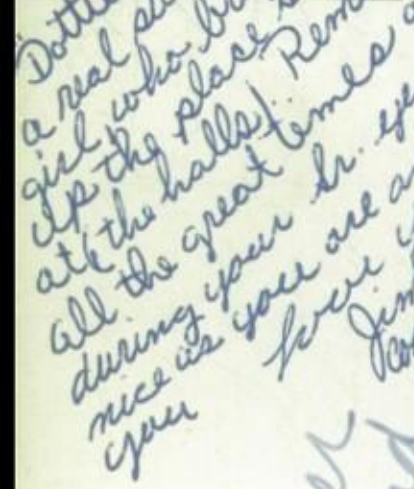 Dottie
a real
girl who
up the place
at the halls! Rem
all the great times
during your Sr. ye
nice as you are a
you love
Jim